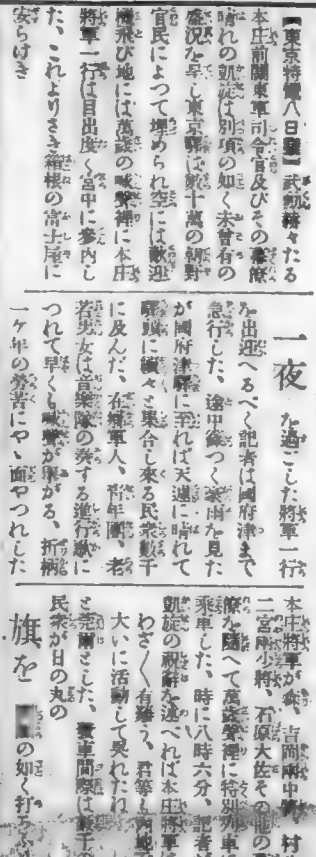 【東京特電八日發】武勳赫々たる
本庄前關東軍司令官及びその幕僚
晴れの凱旋は別項の如く未曾有の
盛況を呈し東京驛は數十萬の朝野
官民によつて埋められ空には歡迎
機飛び地には萬歳の喊聲裡に本庄
將軍一行は目出度く宮中に參内し
た、これよりさき箱根の富士屋に
安らけき
一夜 を過ごした將軍一行
を出迎へるべく記者は國府津まで
急行した、途中篠つく豪雨を見た
が國府津驛に至れば天遠に晴れて
驛頭に續々と集合し來る民衆數千
に及んだ、在郷軍人、靑年團、老
若男女は音樂隊の奏する進行歌に
つれて早くも喊聲が擧がる、折柄
一ケ年の勞苦にやゝ面やつれした
本庄將軍が
二宮兩少將、石原大佐その他の
僚を隨へて萬歳聲裡に特別列車
乘車した、時に八時六分、記者
凱旋の祝辭を述べれば本庄將軍は
わざ〱有難う、君等も内地で
大いに活動して呉れたね
と莞爾とした、發車間際は數千
民衆が日の丸の
旗を の如く打ち